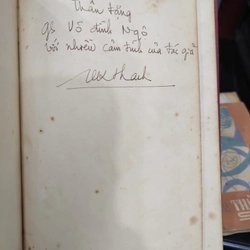 Thân tặng
gs Võ đình Ngộ
với nhiều cảm tình của tác giả